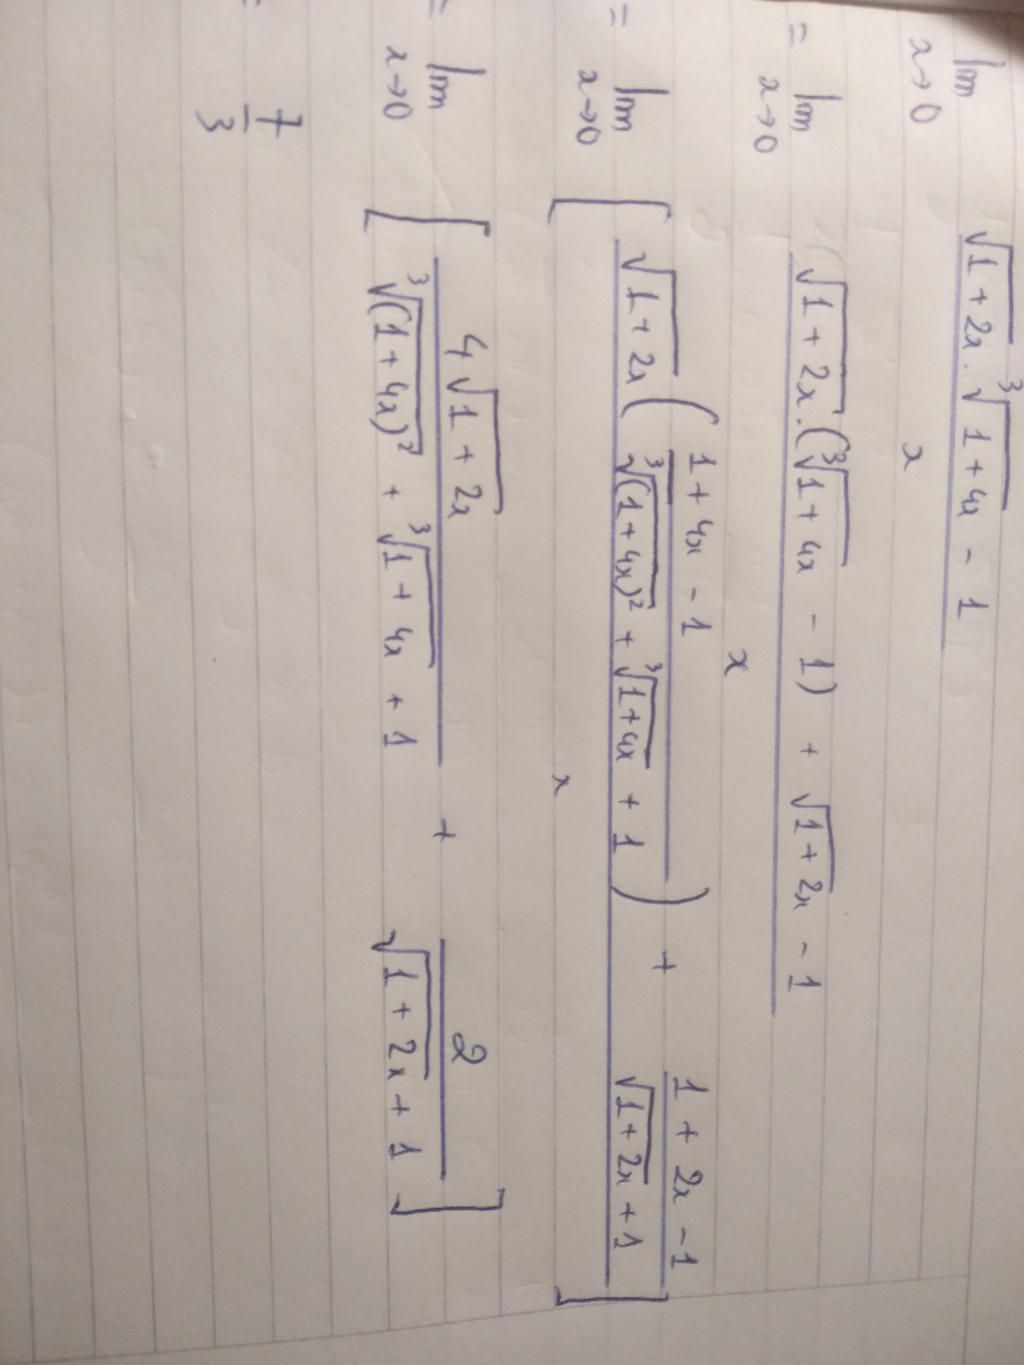 lim x→0 (√(1+2x) . ∛(1+4x) - 1) / x
= lim x→0 (√(1+2x) . (∛(1+4x) - 1) + √(1+2x) - 1) / x
= lim x→0 [ (√(1+2x) ( (1+4x-1) / (∛((1+4x)²) + ∛(1+4x) + 1) ) + (1+2x-1) / (√(1+2x) + 1)) / x ]
= lim x→0 [ 4√(1+2x) / (∛((1+4x)²) + ∛(1+4x) + 1) + 2 / (√(1+2x) + 1) ]
= 7/3